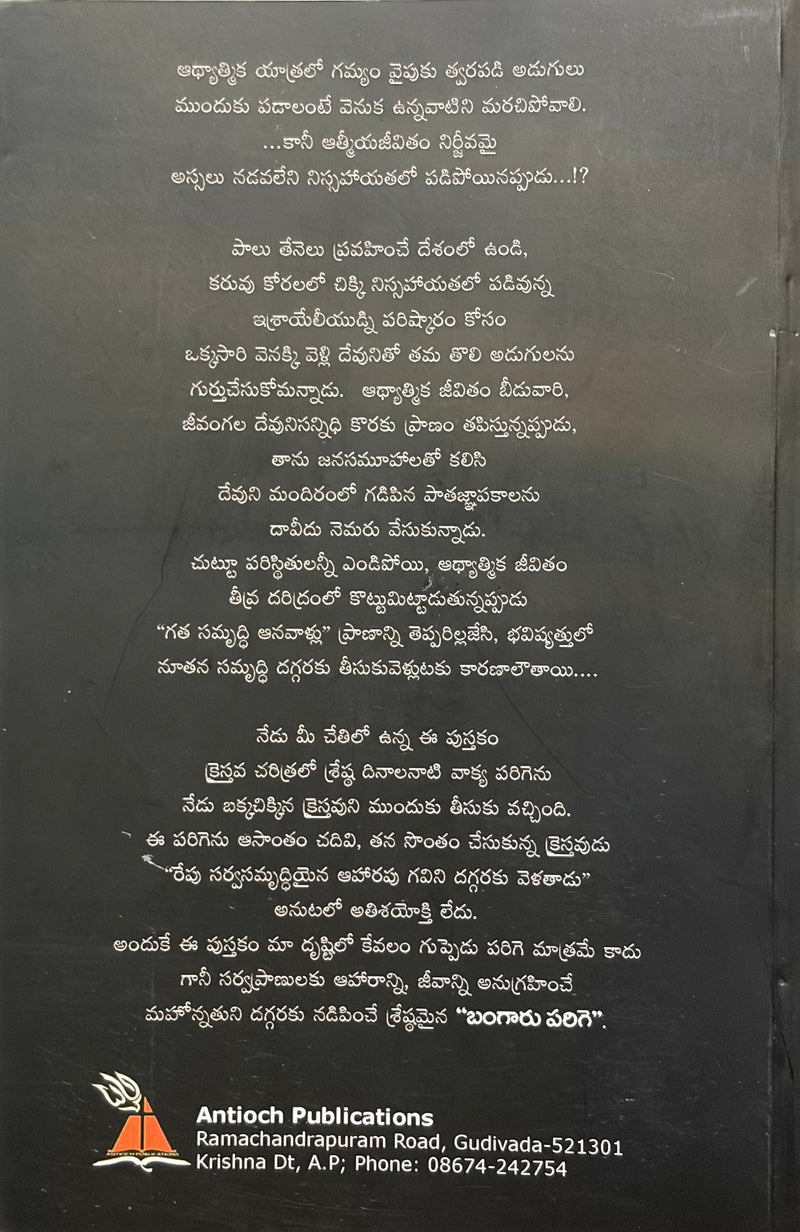 ఆధ్యాత్మిక యాత్రలో గమ్యం వైపుకు త్వరపడి అడుగులు
ముందుకు పడాలంటే వెనుక ఉన్నవాటిని మరచిపోవాలి.
...కానీ ఆత్మీయజీవితం నిర్జీవమై
అస్సలు నడవలేని నిస్సహాయతలో పడిపోయినప్పుడు...!?
పాలు తేనెలు ప్రవహించే దేశంలో ఉండి,
కరువు కోరలలో చిక్కి నిస్సహాయతలో పడివున్న
ఇశ్రాయేలీయుడ్ని పరిష్కారం కోసం
ఒక్కసారి వెనక్కి వెళ్లి దేవునితో తమ తొలి అడుగులను
గుర్తుచేసుకోమన్నాడు. ఆధ్యాత్మిక జీవితం బీడువారి,
జీవంగల దేవునిసన్నిధి కొరకు ప్రాణం తపిస్తున్నప్పుడు,
తాను జనసమూహాలతో కలిసి
దేవుని మందిరంలో గడిపిన పాతజ్ఞాపకాలను
దావీదు నెమరు వేసుకున్నాడు.
చుట్టూ పరిస్థితులన్నీ ఎండిపోయి, ఆధ్యాత్మిక జీవితం
తీవ్ర దరిద్రంలో కొట్టుమిట్టాడుతున్నప్పుడు
“గత సమృద్ధి ఆనవాళ్లు” ప్రాణాన్ని తెప్పరిల్లజేసి, భవిష్యత్తులో
నూతన సమృద్ధి దగ్గరకు తీసుకువెళ్లుటకు కారణాలౌతాయి....
నేడు మీ చేతిలో ఉన్న ఈ పుస్తకం
క్రైస్తవ చరిత్రలో శ్రేష్ఠ దినాలనాటి వాక్య పరిగెను
నేడు బక్కచిక్కిన క్రైస్తవుని ముందుకు తీసుకు వచ్చింది.
ఈ పరిగెను ఆసాంతం చదివి, తన సొంతం చేసుకున్న క్రైస్తవుడు
“రేపు సర్వసమృద్ధియైన ఆహారపు గవిని దగ్గరకు వెళతాడు”
అనుటలో అతిశయోక్తి లేదు.
అందుకే ఈ పుస్తకం మా దృష్టిలో కేవలం గుప్పెడు పరిగె మాత్రమే కాదు
గానీ సర్వప్రాణులకు ఆహారాన్ని, జీవాన్ని అనుగ్రహించే
మహోన్నతుని దగ్గరకు నడిపించే శ్రేష్ఠమైన “బంగారు పరిగె”.
Antioch Publications
Ramachandrapuram Road, Gudivada-521301
Krishna Dt, A.P; Phone: 08674-242754
ANTIOCH PUBLICATIONS